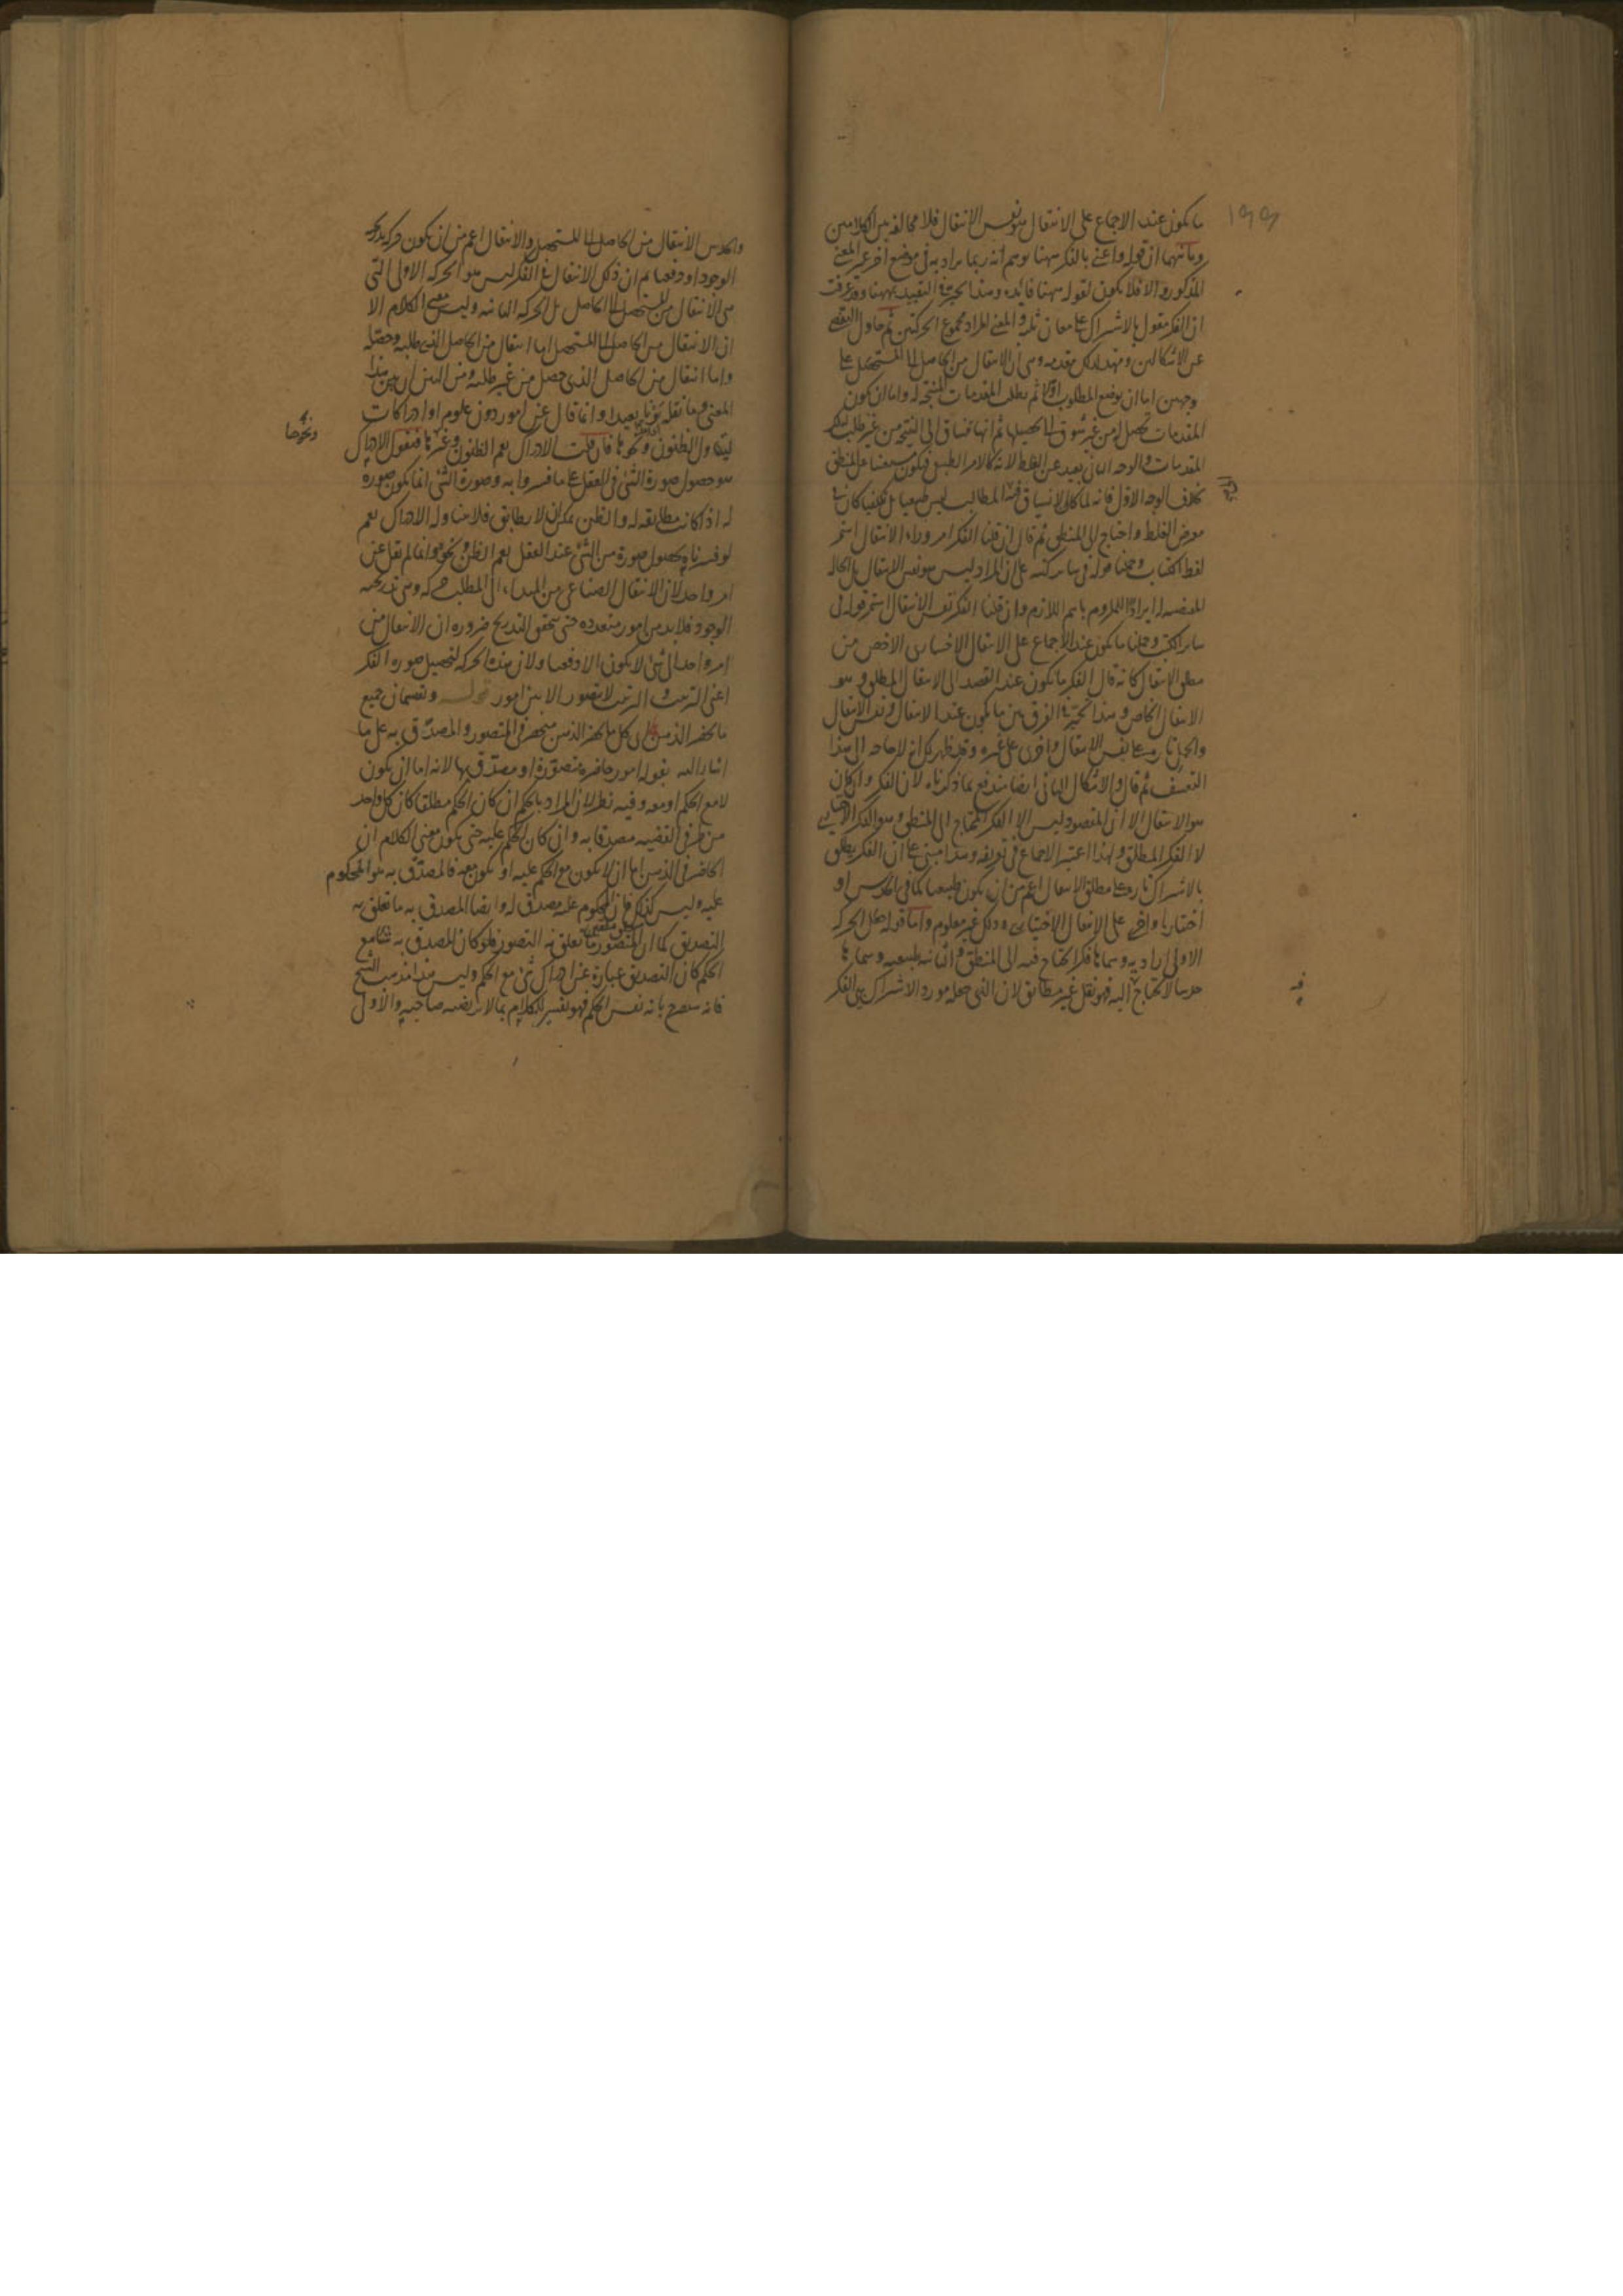 ما يكون عند الاجماع على الانتقال هو نفس الانتقال فلا مخالفة بين الكلامين
وثانيهما ان قوله واعنى بالفكر ههنا يوهم انه ربما يراد به فى موضع اخر غير المعنى
المذكور والا فلا يكون لقوله ههنا فايده وهذا بحث فى التقييد بههنا وقد عرفت
ان الفكر مقول بالاشتراك على معان ثلثه والمعنى المراد مجموع الحركتين ثم حاول التفصى
عن الاشكالين ومهد لذلك مقدمه وهى ان الانتقال من الحاصل الى المستحصل على
وجهين اما ان يوضع المطلوب اولا ثم يطلب المقدمات المنتجه له واما ان يكون
المقدمات تحصل من غير شوق الى تحصيلها ثم انها تنساق الى النتيجه من غير طلب لتلك
المقدمات والوجه الثانى بعيد عن الغلط لانه كالامر الطبيعى فيكون مستغنيا عن المنطق
بخلاف الوجه الاول فانه لما كان الانسياق فيه الى المطالب ليس طبيعيا بل تكلفيا كان فى
معرض الغلط واحتاج الى المنطق ثم قال ان قلنا الفكر امر وراء الانتقال استمر
لفظ الكتاب وحملنا قوله فى ساير كتبه على ان المراد ليس هو نفس الانتقال بل الحاله
المقتضيه له ايرادا للملزوم باسم اللازم وان قلنا الفكر نفس الانتقال استمر قوله فى
ساير الكتب وحملنا ما يكون عند الاجماع على الانتقال الاختيارى الاخص من
مطلق الانتقال كانه قال الفكر ما يكون عند القصد الى الانتقال المطلق وهو
الانتقال الخاص وهذا تحير فى الفرق بين ما يكون عند الانتقال ونفس الانتقال
والحمل تارة على نفس الانتقال واخرى على غيره وقد ظهر لك انه لا حاجه الى هذا
التعسف ثم قال والاشكال الثانى ايضا مندفع بما ذكرناه لان الفكر وان كان
هو الانتقال الا ان المقصود ليس الا الفكر المحتاج الى المنطق وهو الفكر الاختيارى
لا الفكر المطلق ولهذا اعتبر الاجماع فى تعريفه وهذا مبنى على ان الفكر يطلق
بالاشتراك تارة على مطلق الانتقال اعم من ان يكون طبيعيا كما فى الحدس او
اختياريا واخرى على الانتقال الاختيارى وذلك غير معلوم واما قوله جعل الحركه
الاولى اراديه وسماها فكرا يحتاج فيه الى المنطق والثانيه طبيعيه وسماها
حدسا لا يحتاج اليه فهو نقل غير مطابق لان الذى جعله مورد الاشتراك بين الفكر
فيه
والحدس الانتقال من الحاصل الى المستحصل والانتقال اعم من ان يكون حركه تدريجيه
الوجود او دفعيا ثم ان ذلك الانتقال فى الفكر ليس هو الحركه الاولى التى
هى الانتقال من المستحصل الى الحاصل بل الحركه الثانيه وليس معنى الكلام الا
ان الانتقال من الحاصل الى المستحصل اما انتقال من الحاصل الذى طلبه وحصله
واما انتقال من الحاصل الذى حصل من غير طلبه ومن البين ان بين هذا
المعنى وما نقله بونا بعيدا وانما قال عن امور دون علوم او ادراكات
ليتناول الظنون ونحوها فان قلت الادراك يعم الظنون وغيرها فنقول الادراك
ونحوها
هو حصول صورة الشئ فى العقل على ما فسروا به وصورة الشئ انما يكون صورة
له اذا كانت مطابقه له والظن يمكن ان لا يطابق فلا يتناوله الادراك نعم
لو فسرناه بحصول صورة من الشئ عند العقل يعم الظن ونحوه وانما لم يقل عن
امر واحد لان الانتقال الصناعى من المبداء الى المطلب حركه وهى تدريجيه
الوجود فلا بد من امور متعدده حتى يتحقق التدريج ضروره ان الانتقال من
امر واحد الى شئ لا يكون الا دفعيا ولان هذه الحركه لتحصيل صوره الفكر
اعنى الترتيب والترتيب لا يتصور الا بين امور وتصمانى جميع
ما يحضر الذهن اى كل ما يحضر الذهن منحصر فى المتصور والمصدق به على ما
اشار اليه بقوله امور حاضره متصورة او مصدق بها لانه اما ان يكون
لا مع الحكم او معه وفيه نظر لان المراد بالحكم ان كان الحكم مطلقا كان كل واحد
من طرفى القضيه مصدقا به وان كان الحكم عليه حتى يكون معنى الكلام ان
الحاضر فى الذهن اما ان لا يكون مع الحكم عليه او يكون معه فالمصدق به هو المحكوم
عليه وليس كذلك فان المحكوم عليه مصدق له وايضا المصدق به ما تعلق به
التصديق كما ان المتصور ما تعلق به التصور فلو كان المصدق به شيئا مع
الحكم كان التصديق عبارة عن ادراك شئ مع الحكم وليس هذا مذهب الشيخ
فانه سيصرح بانه نفس الحكم فهو تفسير للكلام بما لا يرتضيه صاحبه والاول